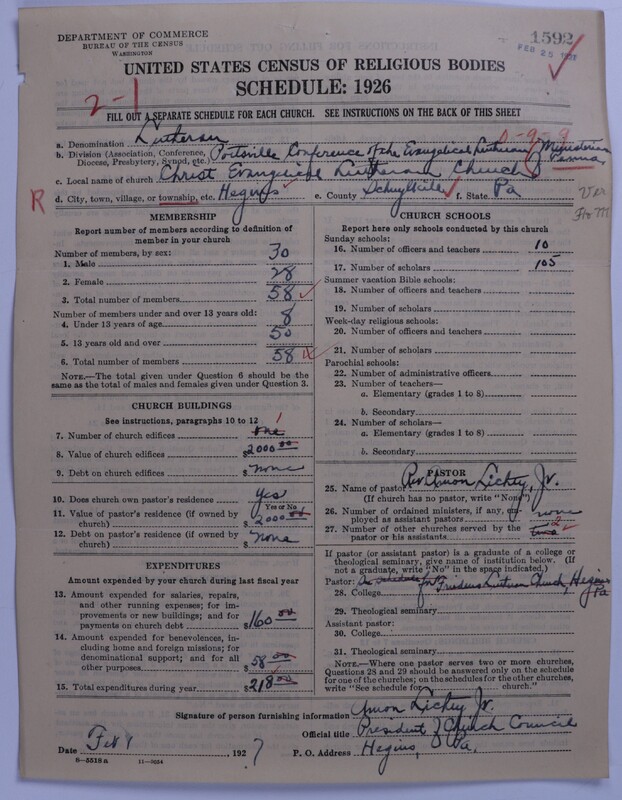 DEPARTMENT OF COMMERCE
BUREAU OF THE CENSUS
WASHINGTON
1592
FEB 25 1927
UNITED STATES CENSUS OF RELIGIOUS BODIES
SCHEDULE: 1926
2-1
FILL OUT A SEPARATE SCHEDULE FOR EACH CHURCH. SEE INSTRUCTIONS ON THE BACK OF THIS SHEET
a. Denomination Lutheran
0-9-9
b. Division (Association, Conference, Diocese, Presbytery, Synod, etc.) Pottsville Conference of the Evangelical Lutheran Ministerium
c. Local name of church Christ Evangelical Lutheran Church
R
d. City, town, village, or township, etc. Hegins e. County Schuylkill f. State Pa
MEMBERSHIP
Report number of members according to definition of
member in your church
Number of members, by sex:
1. Male 30
2. Female 28
3. Total number of members 58
Number of members under and over 13 years old:
4. Under 13 years of age 8
5. 13 years old and over 50
6. Total number of members 58
NOTE.—The total given under Question 6 should be
the same as the total of males and females given under Question 3.
CHURCH BUILDINGS
See instructions, paragraphs 10 to 12
7. Number of church edifices one 1
8. Value of church edifices $2000 00
9. Debt on church edifices $ none
10. Does church own pastor's residence Yes
Yes or No
11. Value of pastor's residence (if owned by
church) $2000 00
12. Debt on pastor's residence (if owned by
church) $ none
EXPENDITURES
Amount expended by your church during last fiscal year
13. Amount expended for salaries, repairs,
and other running expenses; for im-
provements or new buildings; and for
payments on church debt $160 00
14. Amount expended for benevolences, in-
cluding home and foreign missions; for
denominational support; and for all
other purposes $58 00
15. Total expenditures during year $218 00
CHURCH SCHOOLS
Report here only schools conducted by this church
Sunday schools:
16. Number of officers and teachers 10
17. Number of scholars 105
Summer vacation Bible schools:
18. Number of officers and teachers
19. Number of scholars
Week-day religious schools:
20. Number of officers and teachers
21. Number of scholars
Parochial schools:
22. Number of administrative officers
23. Number of teachers—
a. Elementary (grades 1 to 8)
b. Secondary
24. Number of scholars—
a. Elementary (grades 1 to 8)
b. Secondary
PASTOR
25. Name of pastor Rev. Amon Lichty, Jr.
(If church has no pastor, write "None")
26. Number of ordained ministers, if any, em-
ployed as assistant pastors none
27. Number of other churches served by the
pastor or his assistants 2
If pastor (or assistant pastor) is a graduate of a college or
theological seminary, give name of institution below. (If
not a graduate, write "No" in the space indicated.)
Pastor: See schedule for Friedens Lutheran Church, Hegins
Pa
28. College
29. Theological seminary
Assistant pastor:
30. College
31. Theological seminary
NOTE.—Where one pastor serves two or more churches,
Questions 28 and 29 should be answered only on the schedule
for one of the churches; on the schedules for the other churches,
write "See schedule for church."
Signature of person furnishing information Amon Lichty Jr.
Official title President of Church Council
Date Feb 1, 1927 P. O. Address Hegins, Pa.
6—5518a 11—9054